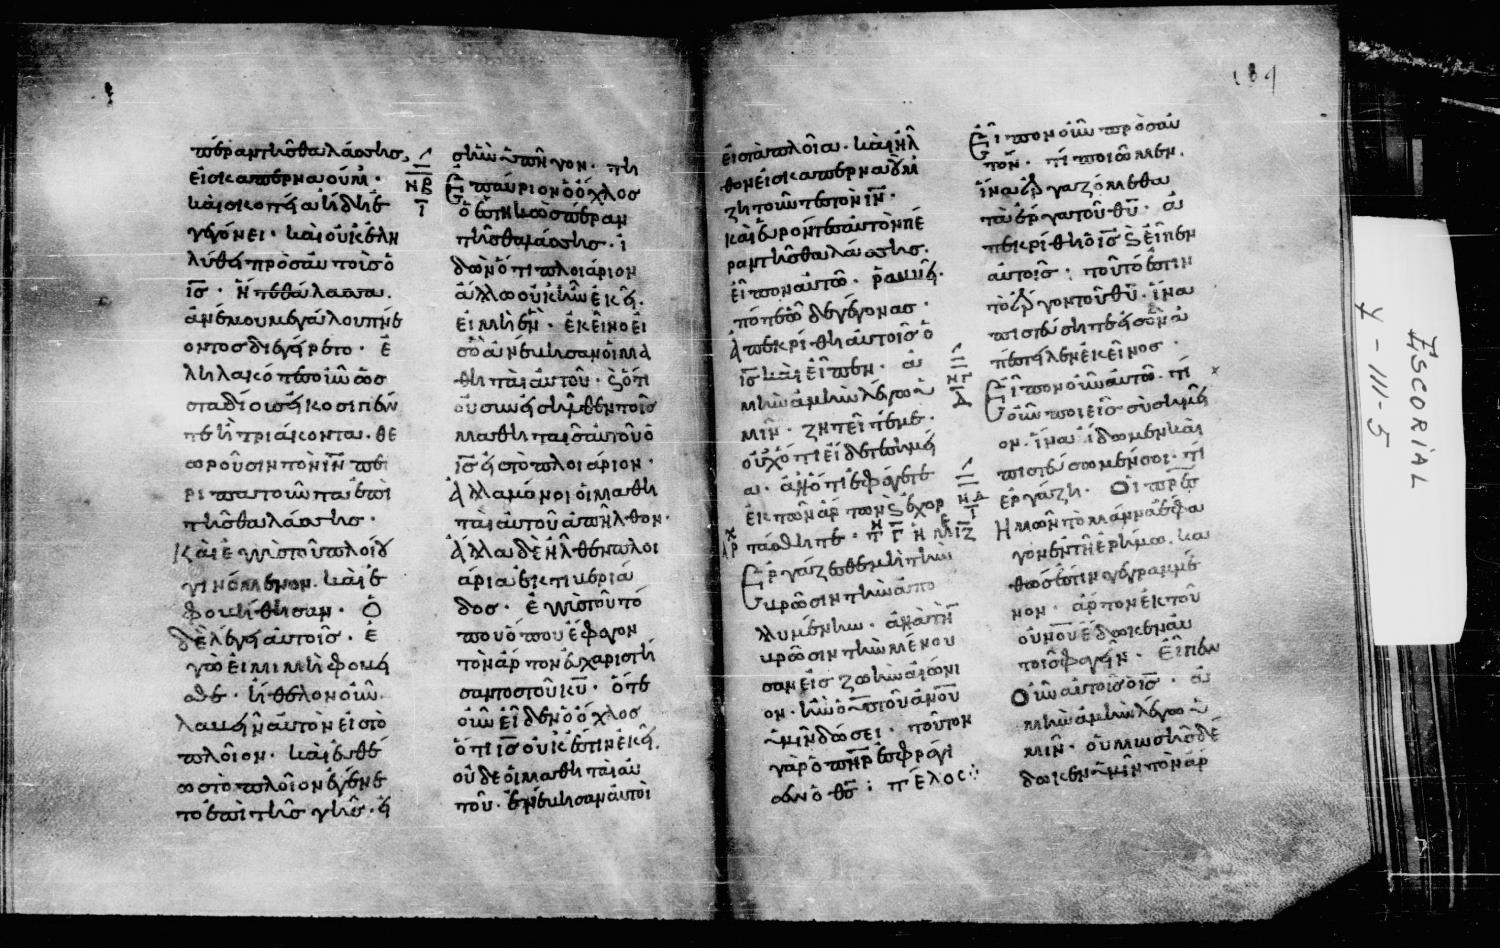 πέραν τῆς θαλάσσης
εἰς καπερναούμ·
καὶ σκοτία ἤδη ἐ
γεγόνει· καὶ οὐκ ἐλη
λύθει πρὸς αὐτοὺς ὁ
ἰς· ἥ τε θάλασσα.
ἀνέμου μεγάλου πνέ
οντος διεγείρετο· ἐ
ληλακότες οὖν ὡς
σταδίους εἴκοσι πέν
τε ἢ τριάκοντα· θε
ωροῦσιν τὸν ιν πε
ριπατοῦντα ἐπὶ
τῆς θαλάσσης·
Καὶ ἐγγὺς τοῦ πλοίου
γινόμενον. καὶ ἐ
φοβήθησαν· Ὁ
δὲ λέγει αὐτοῖς· ἐ
γώ εἰμι μὴ φοβεῖ
σθε· ἤθελον οὖν
λαβεῖν αὐτὸν εἰς τὸ
πλοῖον· καὶ εὐθέ
ως τὸ πλοῖον ἐγένε
το ἐπὶ τῆς γῆς· εἰ
ἣν ὑπῆγον· τῇ
Ἐπαύριον ὁ ὄχλος
ὁ ἑστηκὼς πέραν
τῆς θαλάσσης· ἰ
δὼν ὅτι πλοιάριον
ἄλλο οὐκ ἦν ἐκεῖ.
εἰ μὴ ἕν· ἐκεῖνο εἰ
σ ὃ ἀνέβησαν οἱ μα
θηταὶ αὐτοῦ· καὶ ὅτι
οὐ συνεισῆλθεν τοῖς
μαθηταῖς αὐτοῦ ὁ
ἰς εἰς τὸ πλοιάριον·
Ἀλλὰ μόνοι οἱ μαθη
ταὶ αὐτοῦ ἀπῆλθον·
Ἄλλα δὲ ἦλθεν πλοι
άρια ἐκ τιβεριά
δος· ἐγγὺς τοῦ τό
που ὅπου ἔφαγον
τὸν ἄρτον εὐχαριστή
σαντος τοῦ κυ· ὅτε
οὖν εἶδεν ὁ ὄχλος
ὅτι ις οὐκ ἔστιν ἐκεῖ.
οὐδὲ οἱ μαθηταὶ αὐ
τοῦ· ἐνέβησαν αὐτοὶ
εἰς τὰ πλοῖα· καὶ ἦλ
θον εἰς καπερναοὺμ
ζητοῦντες τὸν ιν·
καὶ εὑρόντες αὐτὸν πέ
ραν τῆς θαλάσσης.
εἶπον αὐτῷ· ῥαββεί·
πότε ὧδε γέγονας·
Ἀπεκρίθη αὐτοῖς ὁ
ις καὶ εἶπεν· ἀ
μὴν ἀμὴν λέγω ὑ
μῖν· ζητεῖτέ με·
οὐχ ὅτι εἴδετε σημεῖ
α· ἀλλ' ὅτι ἐφάγετε
ἐκ τῶν ἄρτων καὶ ἐχορ
τάσθητε·
Ἐργάζεσθε μὴ τὴν
βρῶσιν τὴν ἀπο
λλυμένην· ἀλλὰ τὴν
βρῶσιν τὴν μένου
σαν εἰς ζωὴν αἰώνι
ον· ἣν ὁ υς τοῦ ανου
ὑμῖν δώσει· τοῦτον
γὰρ ὁ πηρ ἐσφράγι
σεν ὁ θς: τέλος:
Εἶπον οὖν πρὸς αὐ
τόν· τί ποιῶμεν.
ἵνα ἐργαζόμεθα
τὰ ἔργα τοῦ θυ· ἀ
πεκρίθη ὁ ις καὶ εἶπεν
αὐτοῖς· τοῦτό ἐστιν
τὸ ἔργον τοῦ θυ· ἵνα
πιστεύσητε εἰς ὃν ἀ
πέστειλεν ἐκεῖνος·
Εἶπον οὖν αὐτῷ· τί
οὖν ποιεῖς σὺ σημεῖ
ον· ἵνα ἴδωμεν καὶ
πιστεύσωμέν σοι· τί
ἐργάζῃ· Οἱ πρες
Ἡμῶν τὸ μάννα ἔφα
γον ἐν τῇ ἐρήμῳ. κα
θώς ἐστιν γεγραμμέ
νον· ἄρτον ἐκ τοῦ
οὐνου ἔδωκεν αὐ
τοῖς φαγεῖν· Εἶπεν
Οὖν αὐτοῖς ὁ ις· ἀ
μὴν ἀμὴν λέγω ὑ
μῖν· οὐ μωσῆς δέ
δωκεν ὑμῖν τὸν ἄρ
ESCORIAL
Ψ-III-5